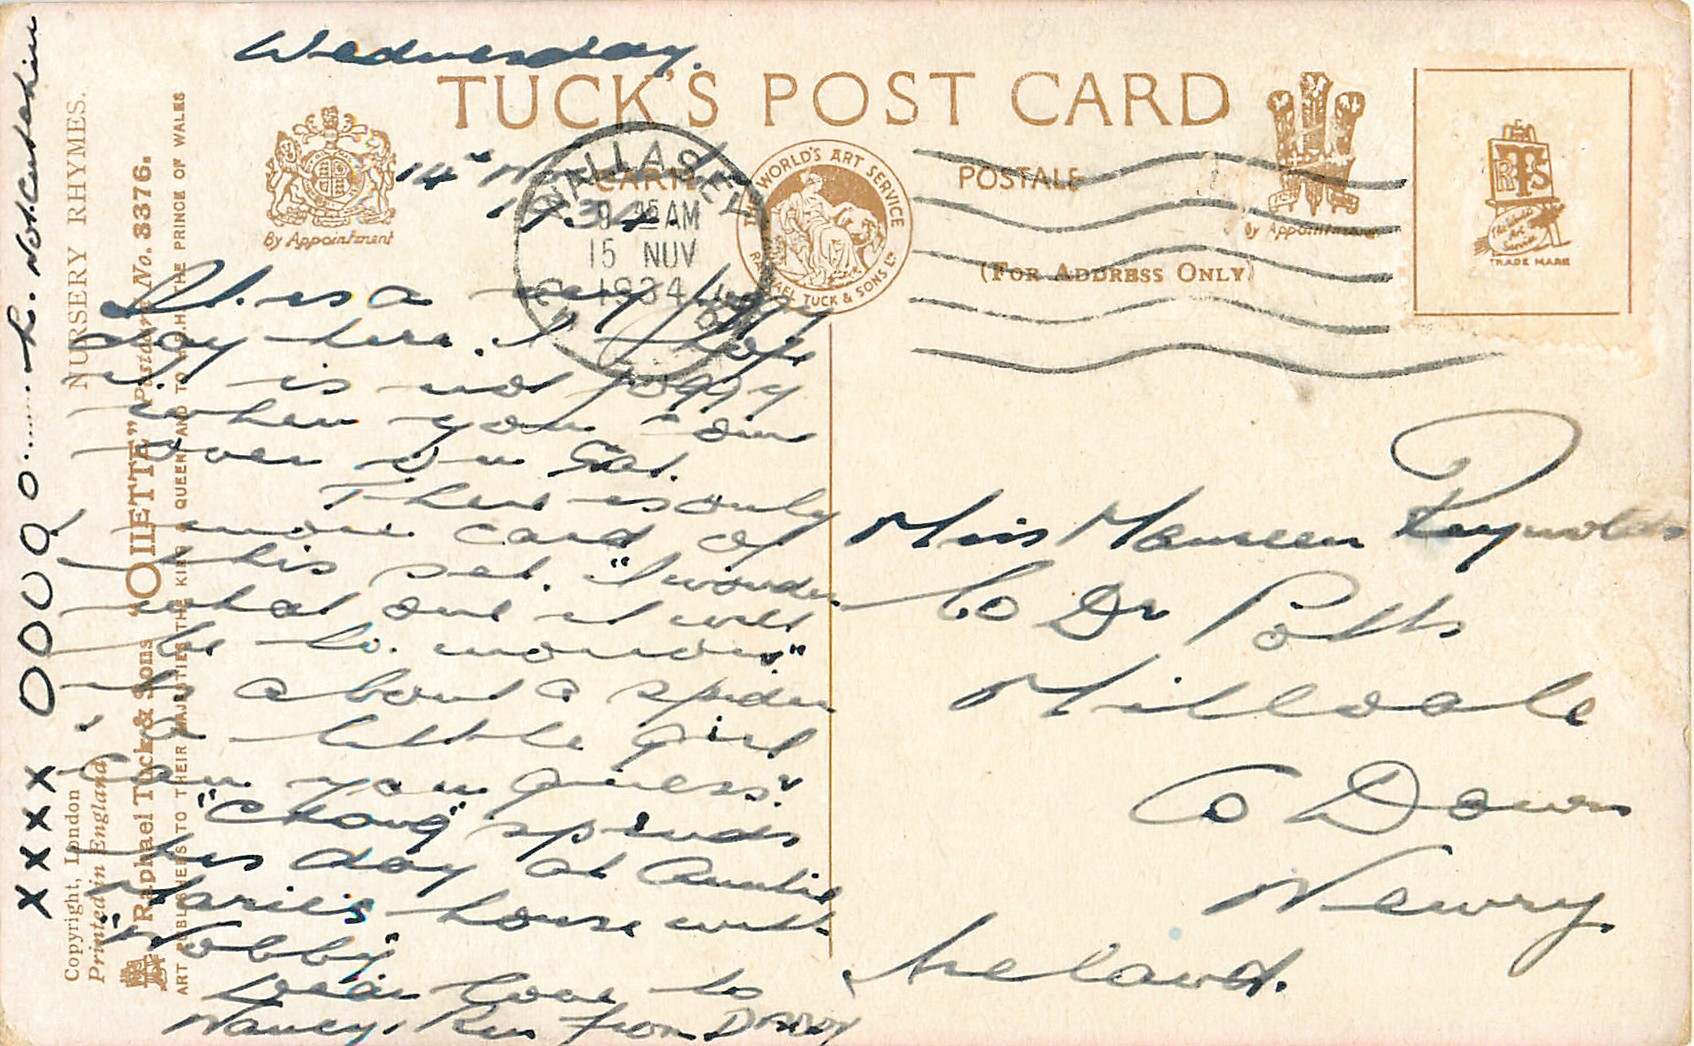 Wednesday.
14th Nov
1934.
TUCK'S POST CARD
CARTE POSTALE
(FOR ADDRESS ONLY)
By Appointment
By Appointment
THE WORLD'S ART SERVICE
RAPHAEL TUCK & SONS LD
RTS
TRADE MARK
WALLASEY
9 15 AM
15 NOV
1934
It is a very foggy
day here. I hope
it is not foggy
when you come
over on Sat.
There is only
1 more card of
this set. "I wonder
what one it will
be to. morrow"
its about a spider
& a little girl
Can you guess?
"Chong" spends
his day at Auntie
Marie's house with
"Nobby"
Dear love to
Nancy, & Ken from DADDY
XXXX OOOOOO
Miss Maureen Reynolds
C/o Dr Potts
Millvale
Co Down
Newry
Ireland.
NURSERY RHYMES.
Copyright, London
Printed in England
Raphael Tuck & Sons "OILETTE" Postcard No. 3376.
ART PUBLISHERS TO THEIR MAJESTIES THE KING & QUEEN AND TO H.R.H. THE PRINCE OF WALES